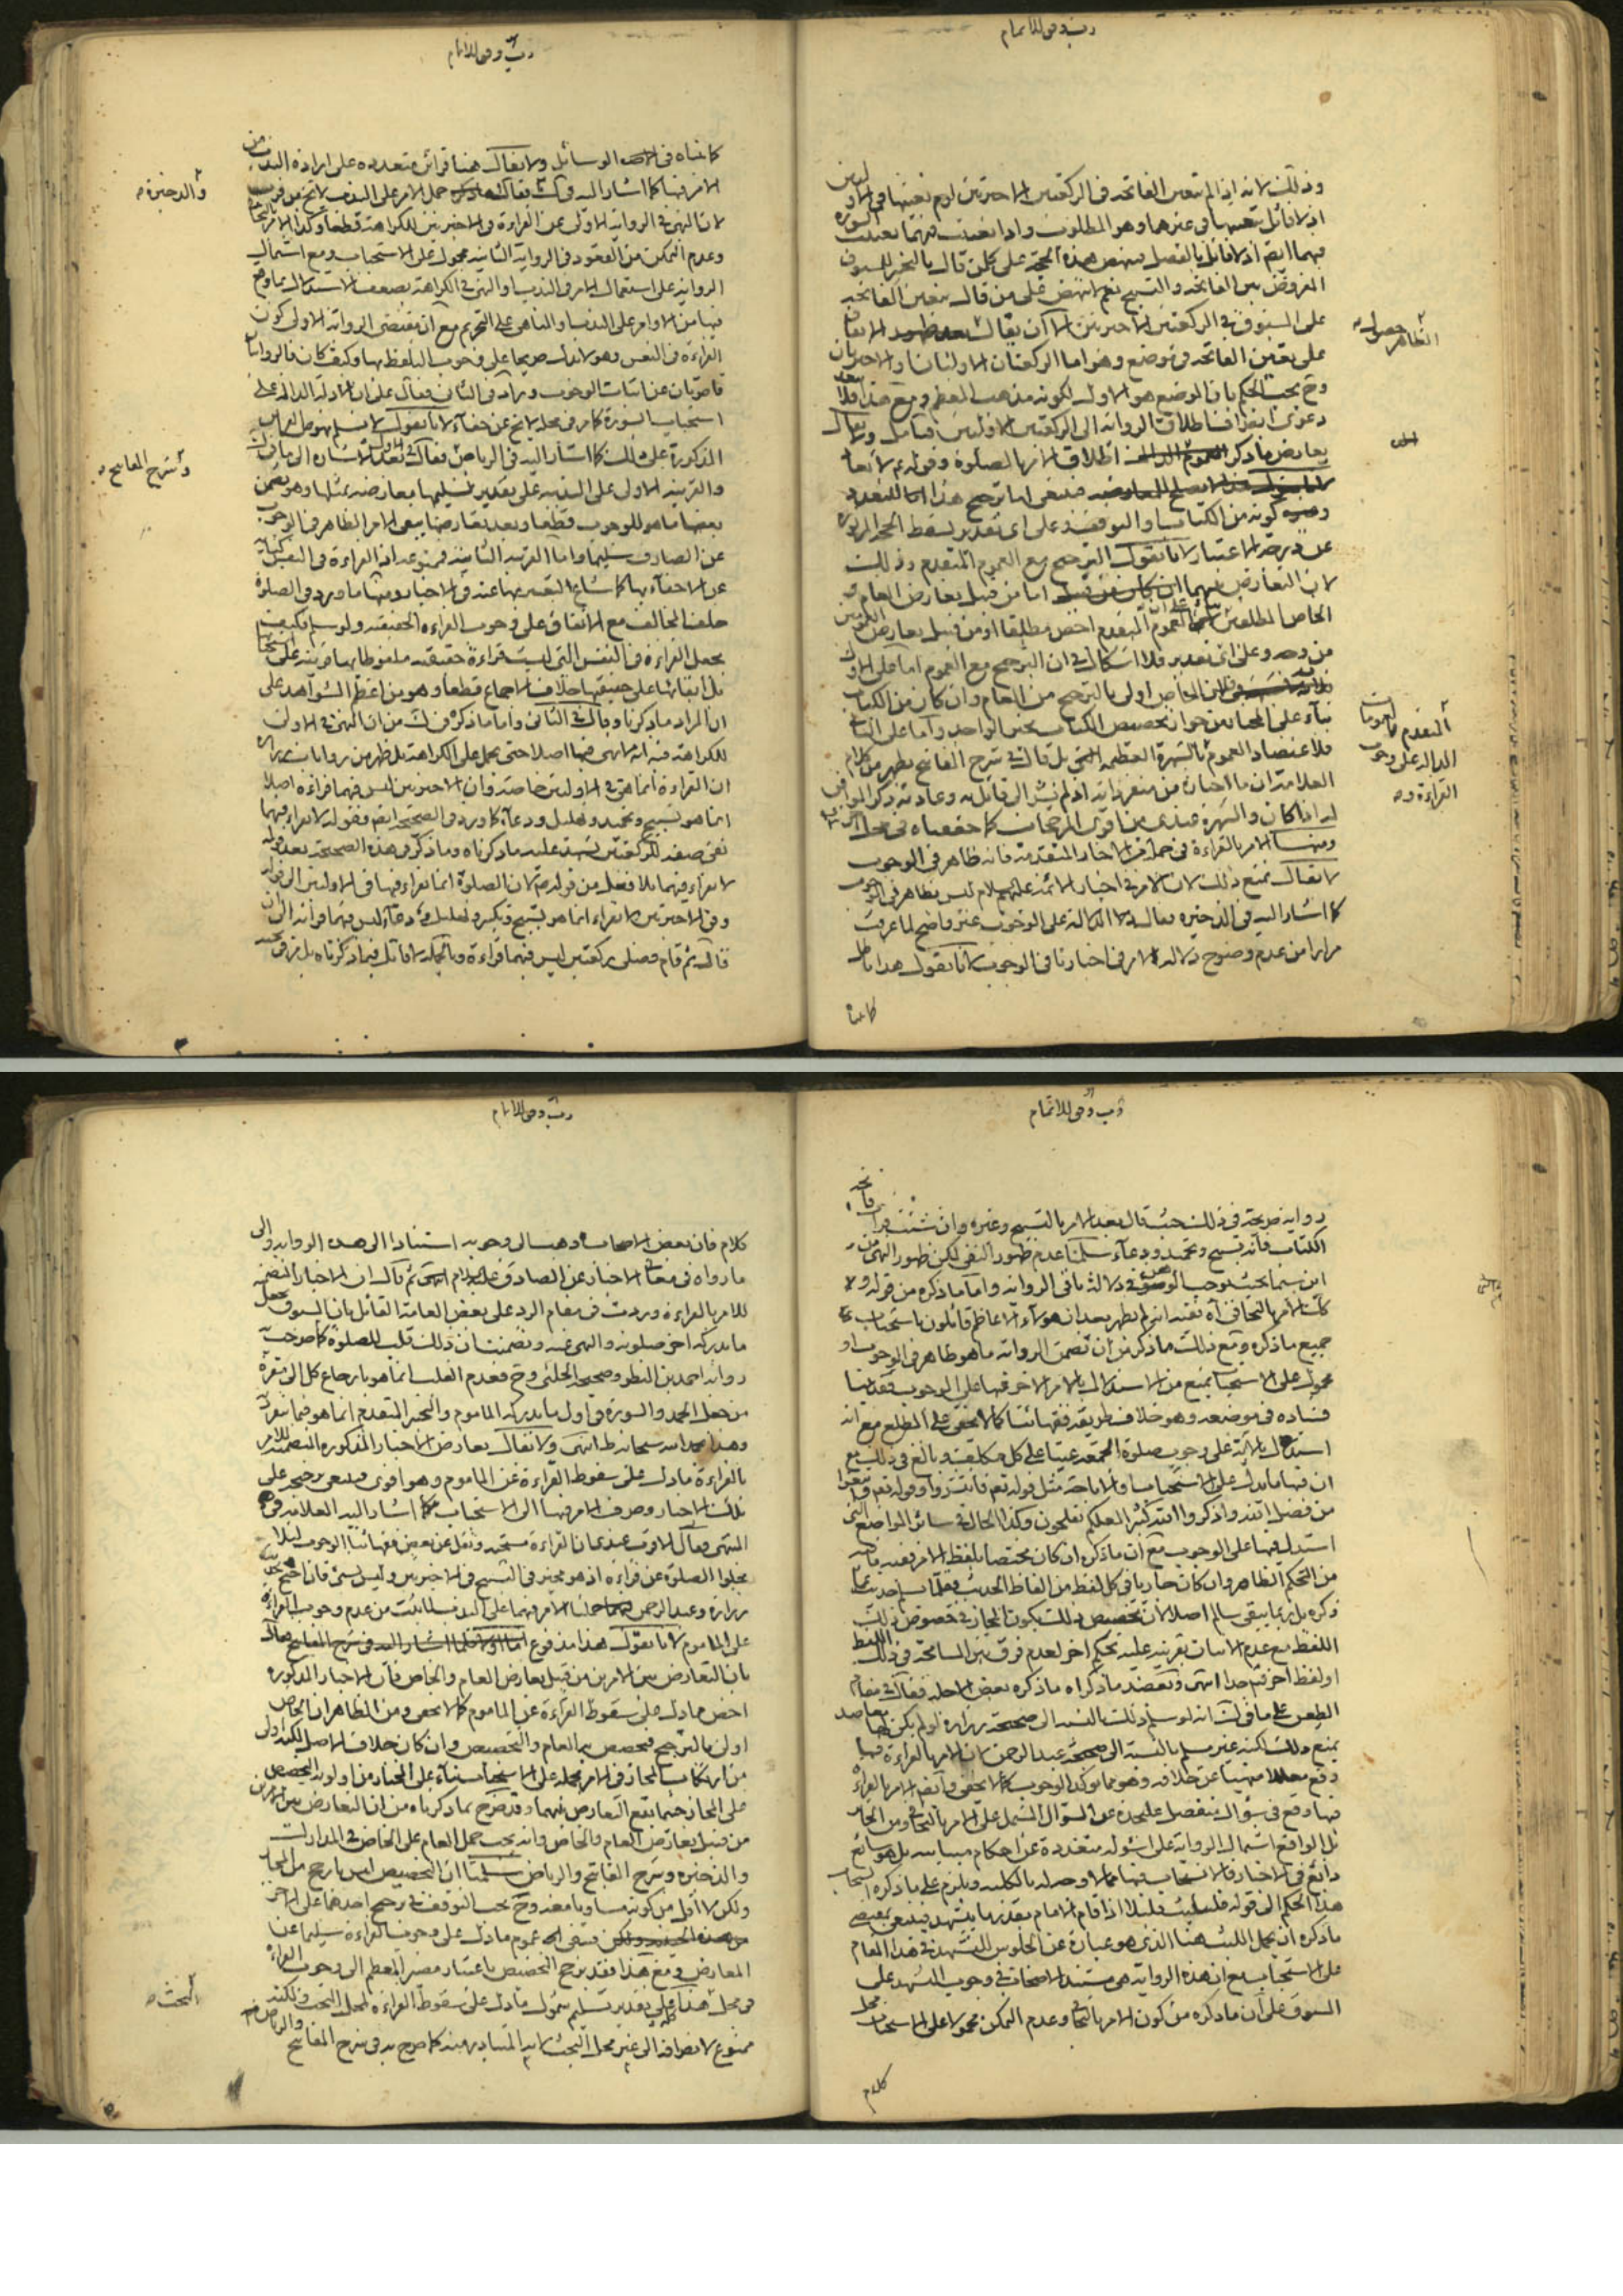 رب وفق للاتمام
وذلك لانه اذا لم تتعين الفاتحة في الركعتين الاخيرتين لزم تعينها في الاوليين
اذ لا قائل بتعينها في غيرها وهو المطلوب واذا تعينت فيهما تعينت السورة
فيهما ايضا اذ لا قائل بالفصل فينهض هذه الحجة على كل من قال بالتخيير للمسبوق
المفروض بين الفاتحة والتسبيح نعم لا ينهض على من قال بتعين الفاتحة
على المسبوق في الركعتين الاخيرتين الا ان يقال
الظاهر حصول
على تعين الفاتحة في موضع وهو اما الركعتان الاوليتان او الاخيرتان
وح يجب الحكم بان الموضع هو الاول لكونه مذهب المعظم ومع هذا فلا
دعوى انصراف اطلاق الرواية الى الركعتين الاوليين فتأمل ولا يقال
يعارض ما ذكر اطلاق الامر بها الصلوة وقوله
فينبغي اما ترجيح هذا
كونه من الكتاب او التوقف وعلى اي تقدير يسقط الحجة المزبورة
عن درجة الاعتبار لانا نقول الترجيح مع العموم المتقدم وذلك
لان التعارض بينهما اما من قبيل تعارض العام و
الخاص المطلقين العموم المتقدم اخص مطلقا او من قبيل تعارض العمومين
من وجه وعلى اي تقدير فلا اشكال في ان الترجيح مع العموم اما على الاول
فلان الخاص اولى بالترجيح من العام وان كان من الكتاب
بناء على المختار من جواز تخصيص الكتاب بخبر الواحد واما على الثاني
المتقدم
الدالة على وجوب
القراءة
فلاعتضاد العموم بالشهرة العظيمة بل قال في شرح المفاتيح يظهر من كلام
العلامة ان ما اختاره من متفرداته اذ لم يشر الى قائل به وعادته ذكر الموافق
له اذا كان والشهرة عندي من اقوى المرجحات كما حققناه في محله
ومنها الامر بالقراءة في جملة من الاخبار المتقدمة فانه ظاهر في الوجوب
لا يقال نمنع ذلك لان الامر في اخبار الائمة عليهم السلام ليس بظاهر في الوجوب
كما اشار اليه في الذخيرة فقال الدلالة على الوجوب غير واضح لما عرفت
مرارا من عدم وضوح دلالة الامر في اخبارنا في الوجوب لانا نقول هذا باطل
كما بيناه
رب وفق للاتمام
كما بيناه في الوسائل ولا يقال هنا قرائن متعددة على ارادة الندب من
الامر فيها كما اشار اليه في ك فقال حمل الامر على الندب لا يخ من قرب
والذخيرة
لان النهي في الرواية الاولى عن القراءة في الاخيرتين للكراهة قطعا وكذا الامر بالتجافي
وعدم التمكن من القعود في الرواية الثانية محمول على الاستحباب ومع اشتمال
الرواية على استعمال الامر في الندب والنهي في الكراهة يضعف الاستدلال بما وقع
فيها من الاوامر على الندب والنواهي على التحريم مع ان مقتضى الرواية الاولى كون
القراءة في النفس وهو لا يدل صريحا على وجوب التلفظ بها وكيف كان فالروايتان
قاصرتان عن اثبات الوجوب وزاد في الثاني فقال على ان الادلة الدالة على
استحباب السورة كما مر في محله لا يخ عن خفاء لانا نقول لا نسلم نهوض القرائن
المذكورة على ذلك كما اشار اليه في الرياض فقال
وشرح المفاتيح
والقرينة الاولى على الندبية على تقدير تسليمها معارضة بمثلها وهو تضمن
بعضها ما هو للوجوب قطعا وبعد تعارضهما يبقى الامر الظاهر في الوجوب
عن الصارف سليما واما القرينة الثانية فممنوعة اذ القراءة في النفس كناية
عن الاخفاء بها كما شاع التعبير بها عنه في الاخبار ومنها ما ورد في الصلوة
خلف المخالف مع الاتفاق على وجوب القراءة الحقيقية ولو سلم فكيف
يجعل القراءة في النفس التي ليست قراءة حقيقة ملفوظا بها قرينة على استحبا
بل ابقائها على حقيقتها خلاف الاجماع قطعا وهو من اعظم الشواهد على
ان المراد ما ذكرنا وقال في الثاني واما ما ذكره في ك من ان النهي في الاولى
للكراهة فيه انه لا نهي فيها اصلا حتى يحمل على الكراهة بل ظهر من روايات زرارة
ان القراءة انما هي في الاوليتين خاصة وان الاخيرتين ليس فيهما قراءة اصلا
انما هو تسبيح وتحميد وتهليل ودعاء كما ورد في الصحيحة ايضا فقوله لا تقرء فيهما
نفي صفة للركعتين يشهد عليه ما ذكرناه وما ذكر في هذه الصحيحة بعد قوله
لا تقراء فيهما بلا فصل من قوله لان الصلوة انما يقراء فيها في الاوليتين الى قوله
وفي الاخيرتين لا يقراء انما هو تسبيح وتكبير وتهليل ودعاء ليس فيهما قراءة الى ان
قال ثم قام فصلى ركعتين ليس فيهما قراءة وبالجملة لا تأمل فيما ذكرناه
رب وفق للاتمام
رواية صريحة في ذلك حيث قال بعد الامر بالتسبيح وغيره وان شئت قرات فاتحة
الكتاب فانه تسبيح وتحميد ودعاء سلمنا عدم ظهور النفي لكن ظهور النهي من
اين سيما بحيث يوجب الوهن في دلالة باقي الرواية واما ما ذكره من قوله و
كذا الامر بالتجافي آه ففيه انه لم يظهر بعد ان هؤلاء الاعاظم قائلون باستحباب
جميع ما ذكره ومع ذلك ما ذكر من ان تضمن الرواية ما هو ظاهر في الوجوب او
محمول على الاستحباب يمنع من الاستدلال بالامر الاخر فيها على الوجوب فقد بينا
فساده في موضعه وهو خلاف طريقة فقهائنا كما لا يخفى على المطلع مع انه
استدل بالآية على وجوب صلوة الجمعة عينا على كل مكلف وبالغ في ذلك مع
ان فيها ما يدل على الاستحباب والاباحة مثل قوله تعالى فانتشروا وقوله تعالى وابتغوا
من فضل الله واذكروا الله كثيرا لعلكم تفلحون وكذا الحال في سائر المواضع التي
استدل فيها على الوجوب مع ان ما ذكره ان كان مختصا بلفظ الامر ففيه ما فيه
من التحكم الظاهر وان كان جاريا في كل لفظ من الفاظ الحديث فقلما يسلم حديث مما
ذكره بل ربما يبقى سالم اصلا لان تخصيص ذلك بكون المجاز في خصوص ذلك
اللفظ مع عدم الاتيان بقرينة عليه تحكم اخر لعدم فرق بين المسامحة في ذلك اللفظ
او لفظ اخر فتم جدا انتهى ويعضد ما ذكراه ما ذكره بعض الاجلة فقال في مقام
الطعن على ما في ك انه لو سلم ذلك بالنسبة الى صحيحة زرارة لو لم يكن لها معاضد
يمنع ذلك لكنه غير مسلم بالنسبة الى صحيحة عبد الرحمن لان الامر بالقراءة فيها
وقع معللا منهيا عن خلافه وهو مما يؤكد الوجوب كما لا يخفى وايضا الامر بالقراءة
فيها وقع في سؤال منفصل على حدة عن السؤال المشتمل على الامر بالتجافي ومن الجائز
بل الواقع اشتمال الرواية على اسئولة متعددة عن احكام متباينة بل هو شائع
ذائع في الاخبار فالاستحباب فيها مما لا وجه له بالكلية ويلزم على ما ذكره استحباب
هذا الحكم الى قوله فليلبث قليلا اذا قام الامام بقدر ما يتشهد فينبغي بمقتضى
ما ذكره ان يحمل اللبث هنا الذي هو عبارة عن الجلوس للتشهد في هذا المقام
على الاستحباب مع ان هذه الرواية هي مستند الاصحاب في وجوب التشهد على
المسبوق على ان ما ذكره من كون الامر بالتجافي وعدم التمكن محمولا على الاستحباب محل
كلام
رب وفق للاتمام
كلام فان بعض الاصحاب ذهب الى وجوبه استنادا الى هذه الرواية والى
ما رواه في معاني الاخبار عن الصادق عليه السلام انتهى ثم قال ان الاخبار المتضمنة
للامر بالقراءة وردت في مقام الرد على بعض العامة القائل بان المسبوق يجعل
ما يدركه اخر صلوته والنهي عنه وتضمنت ان ذلك قلب للصلوة كما صرحت به
رواية احمد بن النضر وصحيحة الحلبي وح فعدم القلب انما هو بارجاع كل الى مقره
من جعل الحمد والسورة في اول ما يدركه الماموم والتخيير المتقدم انما هو فيما ينفرد به
وهذا بحمد الله سبحانه ظ انتهى ولا يقال يعارض الاخبار المذكورة المتضمنة للامر
بالقراءة ما دل على سقوط القراءة عن الماموم وهو اقوى فينبغي ترجيحه على
تلك الاخبار وصرف الامر فيها الى الاستحباب كما اشار اليه العلامة في
المنتهى فقال الاقرب عندي ان القراءة مستحبة ونقل عن بعض فقهائنا الوجوب لئلا
يخلوا الصلوة عن قراءة اذ هو مخير في التسبيح في الاخيرتين وليس بشئ فان احتج بحديث
زرارة وعبد الرحمن حملنا الامر فيهما على الندب لما ثبت من عدم وجوب القراءة
على الماموم لانا نقول هذا مدفوع
بان التعارض بين الامرين من قبيل تعارض العام والخاص فان الاخبار المذكورة
اخص مما دل على سقوط القراءة عن الماموم كما لا يخفى ومن الظاهر ان الخاص
اولى بالترجيح فيخصص به العام والتخصيص وان كان خلاف الاصل لكنه اولى
من ارتكاب المجاز في الامر بحمله على الاستحباب بناء على المختار من اولوية التخصيص
على المجاز حيثما يقع التعارض بينهما وقد صرح بما ذكرناه من ان التعارض بين الامرين
من قبيل تعارض العام والخاص وانه يجب حمل العام على الخاص في المدارك
والذخيرة وشرح المفاتيح والرياض سلمنا ان التخصيص ليس بارجح من المجاز
ولكن لا اقل من كونه مساويا معه وح يجب التوقف في ترجيح احدهما على الاخر
فيبقى عموم ما دل على وجوب القراءة سليما عن
المعارض ومع هذا فقد يرجح التخصيص باعتبار مصير المعظم الى وجوب القراءة
في محل هذا على تقدير تسليم شمول ما دل على سقوط القراءة لمحل البحث ولكنه
البحث
ممنوع لانصرافه الى غير محل البحث لانه المتبادر منه كما صرح به في شرح المفاتيح
والرياض